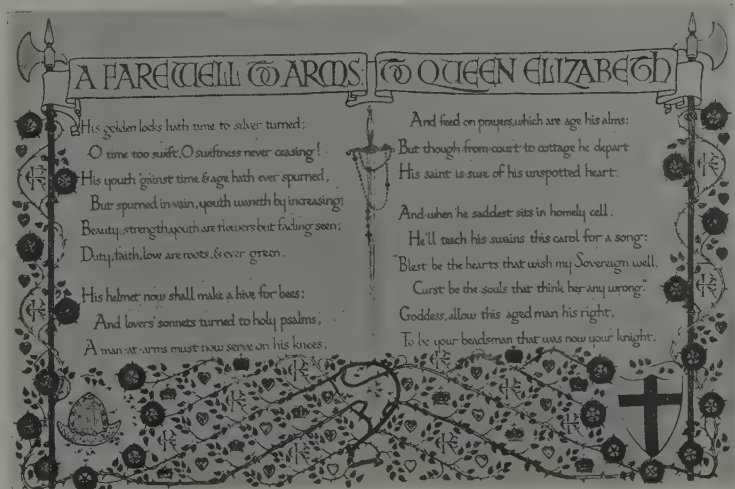 A FAREWELL TO ARMS: TO QUEEN ELIZABETH
His golden locks hath time to silver turned;
O time too swift, O swiftness never ceasing!
His youth 'gainst time & age hath ever spurned,
But spurned in vain, youth waneth by increasing:
Beauty, strength, youth are flowers but fading seen;
Duty, faith, love are roots, & ever green.
His helmet now shall make a hive for bees;
And lovers' sonnets turned to holy psalms,
A man-at-arms must now serve on his knees,
And feed on prayers, which are age his alms:
But though from court to cottage he depart
His saint is sure of his unspotted heart.
And when he saddest sits in homely cell,
He'll teach his swains this carol for a song:
"Blest be the hearts that wish my Sovereign well,
Curst be the souls that think her any wrong."
Goddess, allow this aged man his right,
To be your beadsman that was now your knight.